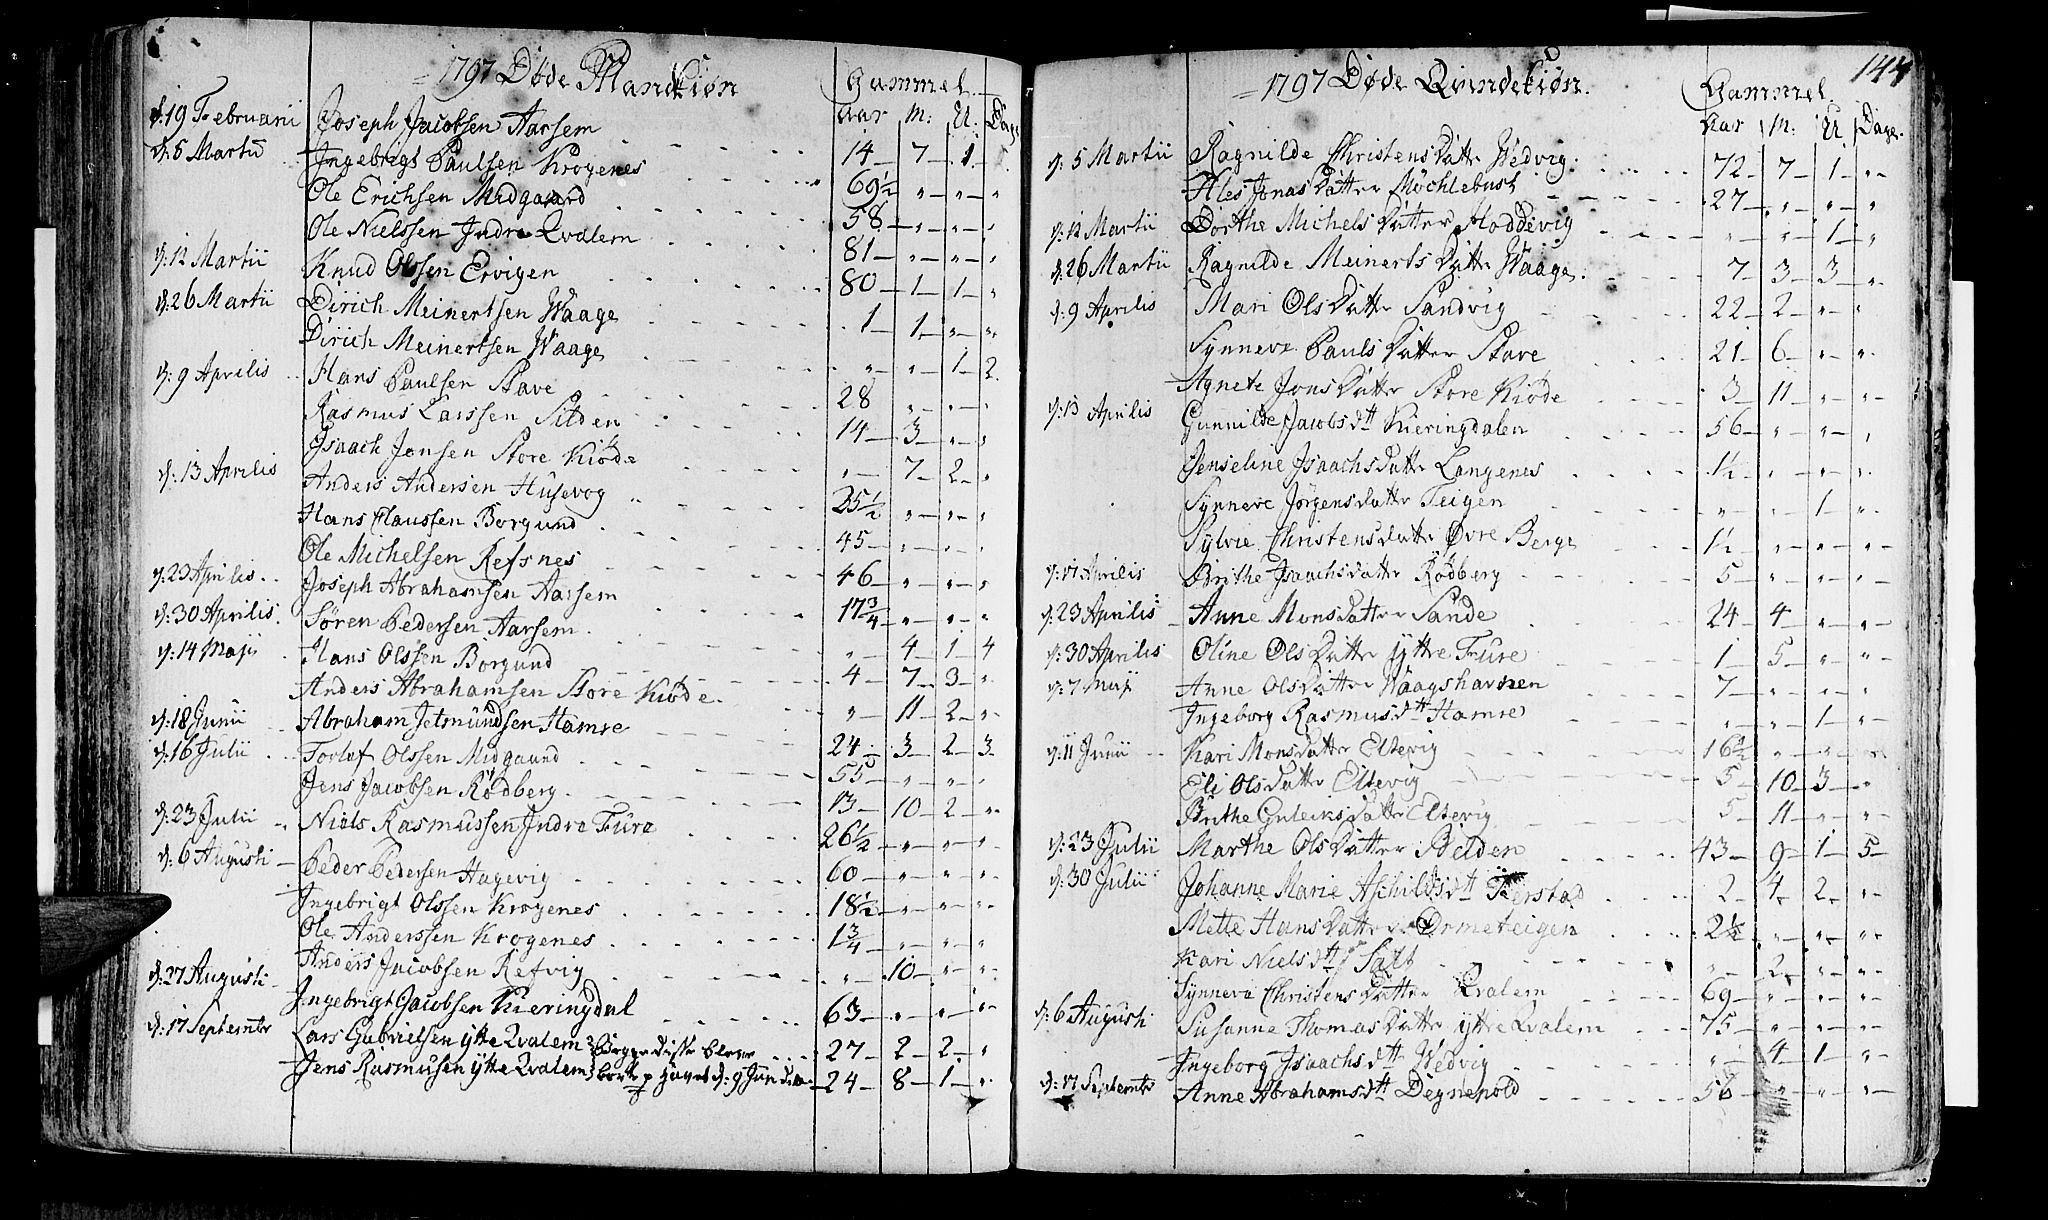 1797 Døde Mandkiøn
Gammel
Aar M: U. Dage
d: 19 Februarii Joseph Jacobsen Aarsem 14 7 1
d: 5 Martii Ingebrigt Paulsen Krogenes 69½ „ „ „
Ole Erichsen Midgaard 58 „ „ „
Ole Nielssen Indre Qvalem 81 „ „ „
d: 12 Martii Knud Olssen Ervigen 80 1 1 „
d: 26 Martii Dirich Meinertsen Waage 1 1 „ „
Dirich Meinertsen Waage „ „ 1 2
d: 9 Aprilis Hans Paulsen Stave 28 „ „ „
Rasmus Larssen Silden 14 3 „ „
Isaach Jonsen Store Kiøde „ 7 2 „
d: 13 Aprilis Anders Andersen Husevog 25½ „ „ „
Hans Claussen Borgund 45 „ „ „
Ole Michelsen Refsnes 46 „ „ „
d: 23 Aprilis Joseph Abrahamsen Aarsem 17¾ „ „ „
d: 30 Aprilis Søren Pedersen Aarsem „ 4 1 4
d: 14 Maji Hans Olssen Borgund 4 7 3 „
Anders Abrahamsen Store Kiøde „ 11 2 „
d: 18 Junii Abraham Jetmundsen Hamre 24 3 2 3
d: 16 Julii Torlaf Olssen Midgaard 55 „ „ „
Jens Jacobsen Rødberg 13 10 2 „
d: 23 Julii Niels Rasmussen Indre Fure 26½ „ „ „
d: 6 Augusti Peder Pedersen Hagevig 60 „ „ „
Ingebrigt Olssen Krogenes 18½ „ „ „
Ole Anderssen Krogenes 1¾ „ „ „
Anders Jacobsen Refvig „ 10 „ „
d: 27 Augusti Ingebrigt Jacobsen Kieringdal 63 „ „ „
d: 17 Septembr Lars Gabrielsen ytte Qvalem Begge disse bleve 27 2 2 „
Jens Rasmusen ytte Qvalem borte p Havet d: 9 Jun 24 8 1 „
144
1797 Døde Qvindekiøn.
Gammel
Aar M: U Dage
d: 5 Martii Ragnilde Christens Datter Wedvig 72 7 1 „
Ales Jonas Datter Møchlebust 27 „ „ „
d: 12 Martii Dorthe Michels Datter Hoddevig „ „ 1 „
d: 26 Martii Ragnilde Meinerts Datter Waage 7 3 3 „
d: 9 Aprilis Mari Ols Datter Sandvig 22 2 „ „
Synneve Pauls Datter Stave 21 6 „ „
Agnete Jons Datter Store Kiøde 3 11 „ „
d: 13 Aprilis Gunnilde Jacobs dtt Kieringdalen 56 „ „ „
Jenseline Isaachsdatter Langenes 1½ „ „ „
Synneve Jørgensdatter Teigen „ „ 1 „
Sylvie Christensdatter Øvre Berge 1½ „ „ „
d: 17 Aprilis Brithe Isaachsdatter Rødberg 5 „ „ „
d: 23 Aprilis Anne Monsdatter Sande 24 4 „ „
d: 30 Aprilis Oline Ols Datter ytre Fure 1 5 „ „
d: 7 Maji Anne Ols Datter Waagshavnen 7 „ „ „
Ingeborg Rasmusdtt Hamre „ „ 1 „
d: 11 Junii Kari Monsdatter Eltevig 16½ „ „
Eli Olsdatter Eltevig 5 10 3 „
Brithe Guleiksdatter Eltevig 5 11 „ „
d: 23 Julii Marthe Ols Datter Silden 43 9 1 5
d: 30 Julii Johanne Marie Aschilds dtt 2 4 2 „
Mette Hans Datter Ormeteigen 2½ „ „ „
Kari Nielsdtt Satt „ 2 „ „
Synneva Christens Datter Qvalem 69 „ „ „
d: 6 Augusti Susanne Thomas Datter ytte Qvalem 75 „ „ „
Ingeborg Isaachsdtt Wedvig „ 4 1 „
d: 17 Septembr Anne Abrahamsdtt Degnepold 56 „ „ „